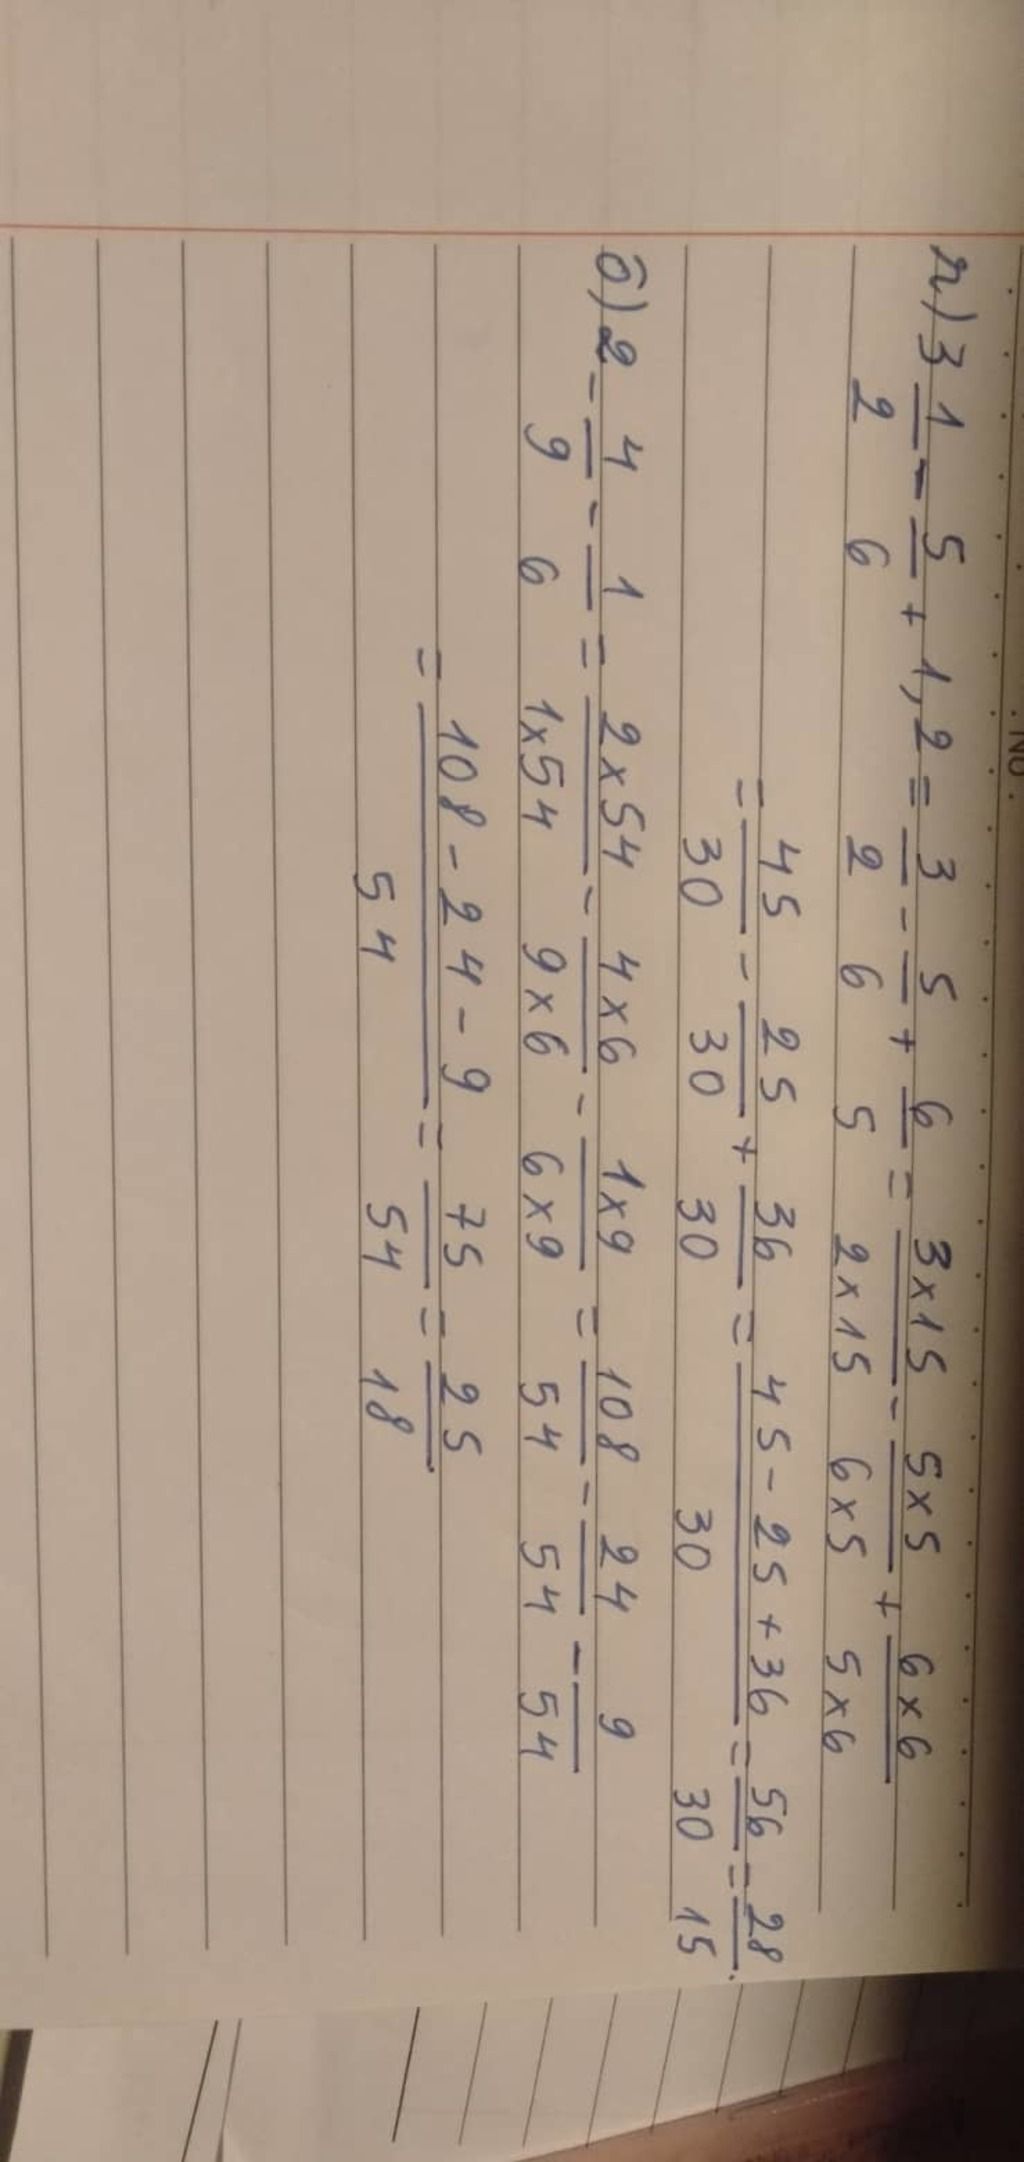 No.
г) 3 1/2 - 5/6 + 1,2 = 3/2 - 5/6 + 6/5 = 3x15/2x15 - 5x5/6x5 + 6x6/5x6
= 45/30 - 25/30 + 36/30 = 45-25+36/30 = 56/30 = 28/15.
б) 2 - 4/9 - 1/6 = 2x54/1x54 - 4x6/9x6 - 1x9/6x9 = 108/54 - 24/54 - 9/54
= 108-24-9/54 = 75/54 = 25/18